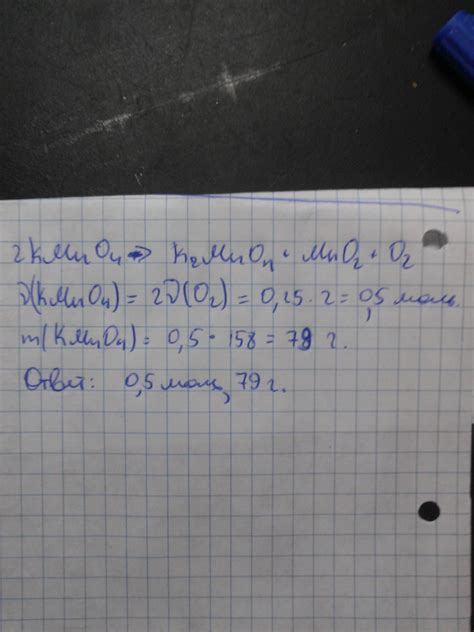 2KMnO4 => K2MnO4 + MnO2 + O2
ν(KMnO4) = 2ν(O2) = 0,25 · 2 = 0,5 моль.
m(KMnO4) = 0,5 · 158 = 79 г.
Ответ: 0,5 моль, 79 г.